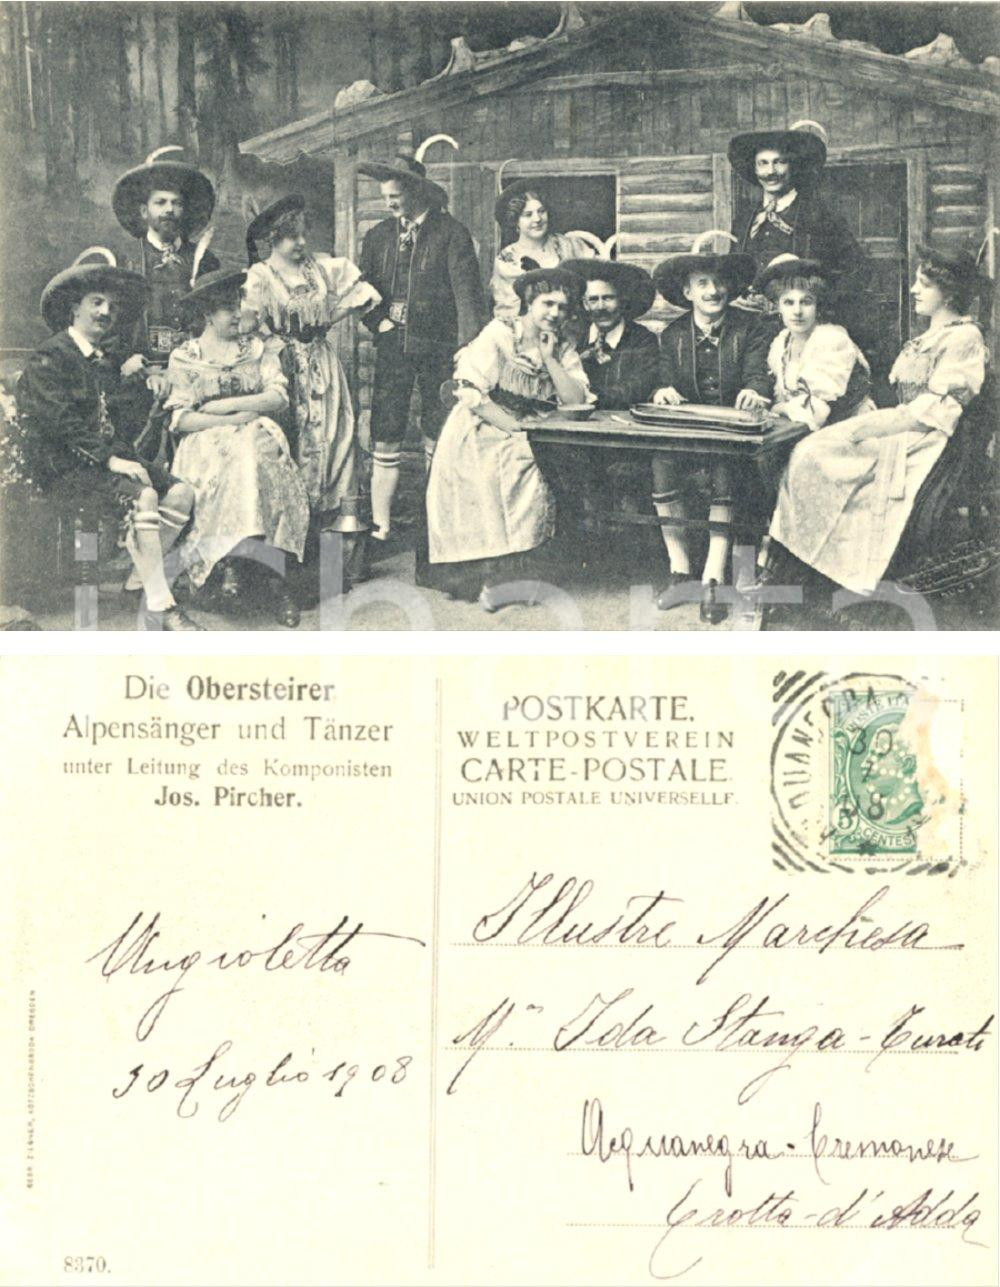 iCharta
Die Obersteirer
Alpensänger und Tänzer
unter Leitung des Komponisten
Jos. Pircher.
POSTKARTE.
WELTPOSTVEREIN
CARTE-POSTALE.
UNION POSTALE UNIVERSELLE.
30
7
08
5
CENTES
Angioletta
30 Luglio 1908
Illustre Marchesa
M.ª Ida Stanga-Turati
Acquanegra-Cremonese
Crotta-d'Adda
GEBR. ZIEGNER, KÖTZSCHENBRODA-DRESDEN
8370.